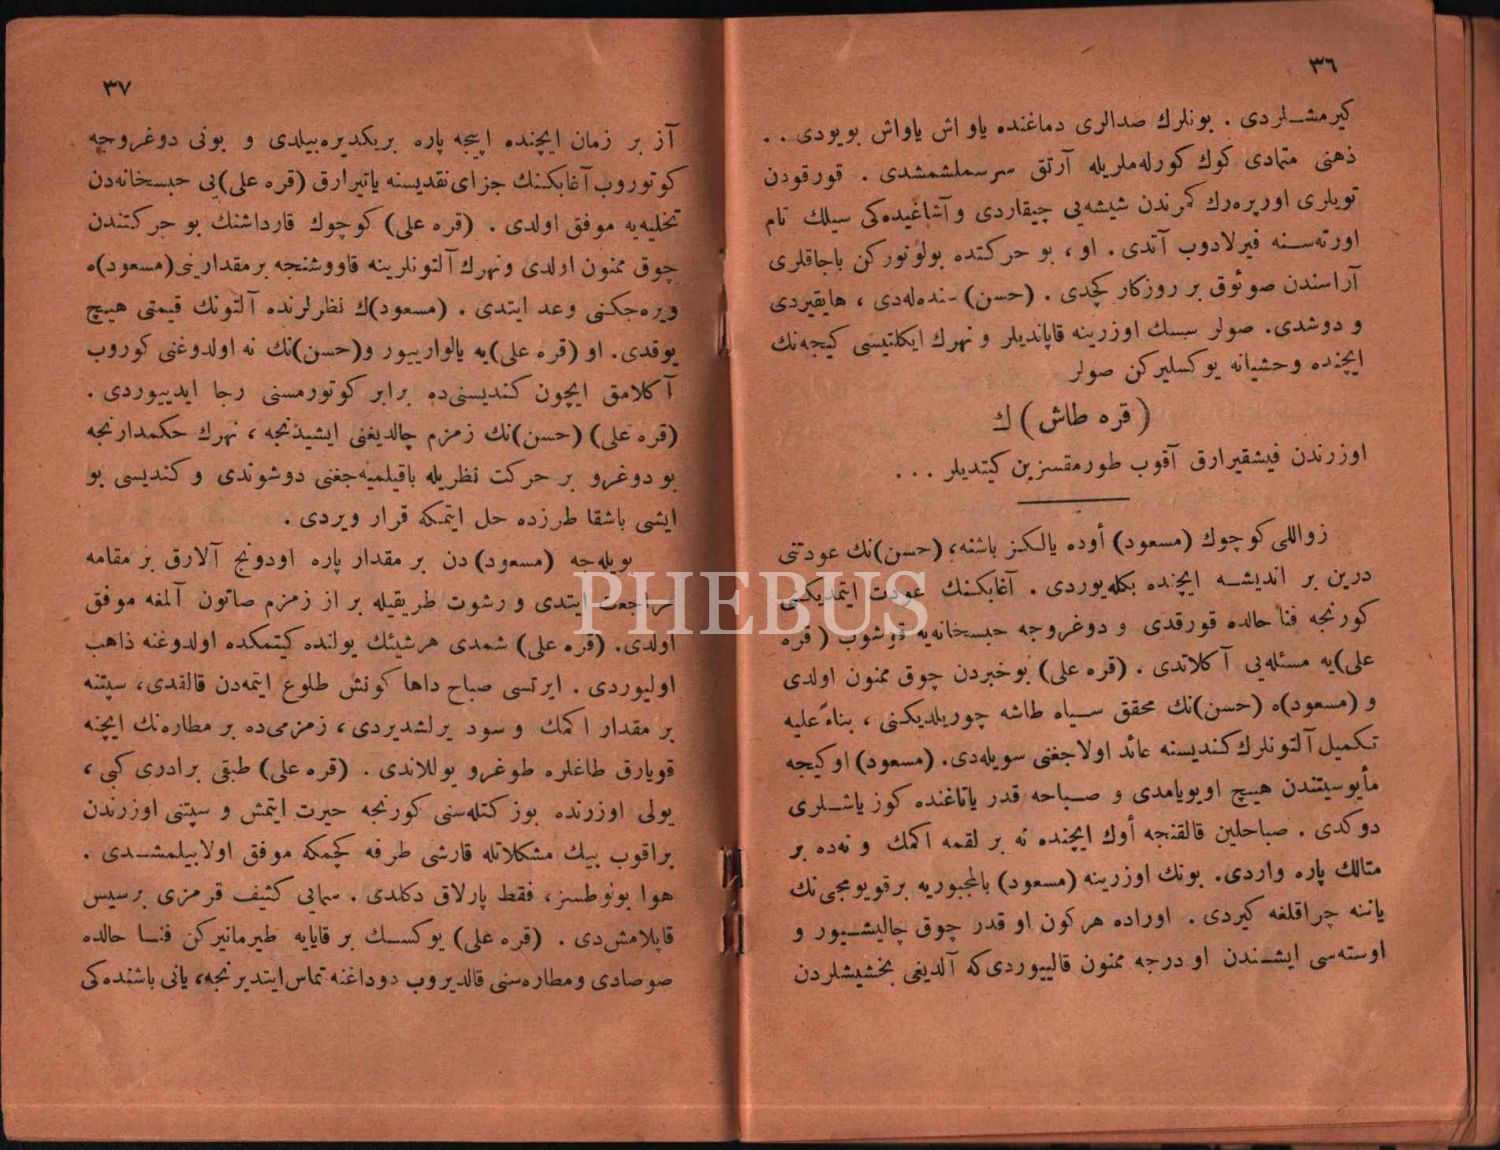 ٣٦
كیرمشـلردی . بونلرك صدالری دماغنده یاواش یاواش بویودی . .
ذهنی متمادی كوك كورله‌ملریله آرتق سرسملشمشدی . قورقودن
تویلری اورپره‌رك كمرندن شیشه‌یی چیقاردی و آشاغیده‌كی سیلك تام
اورته‌سـنه فیرلادوب آتدی . او ، بو حركتده بولونوركن باجاقلری
آراسندن صوئوق بر روزكار كچدی . (حسن) سنده‌له‌دی ، هایقیردی
و دوشدی. صولر سسك اوزرینه قاپاندیلر و نهرك ایكلتیسی كیجه‌نك
ایچنده وحشیانه یوكسلیركن صولر
( قره طاش ) ك
اوزرندن فیشقیرارق آقوب طورمقسزین كیتدیلر . . .
زواللی كوچوك (مسعود) أوده یالكز باشنه، (حسن)نك عودتنی
درین بر اندیشـه ایچنده بكله‌یوردی . آغابكنك عودت ایتمدیكنی
كورنجه فنا حالده قورقدی و دوغروجه حبسخانه‌یه قوشوب ( قره
علی)یه مسئله‌یی آكلاتدی . (قره علی) بوخبردن چوق ممنون اولدی
و (مسعود)ه (حسن)نك محقق سـیاه طاشه چوریلدیكنی ، بناءً علیه
تكمیل آلتونلرك كندیسنه عائد اولاجغنی سویله‌دی. (مسعود) اوكیجه
مأیوسیتندن هیچ اویویامدی و صـباحه قدر یاتاغنده كوز یاشـلری
دوكدی . صباحلین قالقنجه أوك ایچنده نه بر لقمه اكمك و نه‌ده بر
متالك پاره واردی. بونك اوزرینه (مسعود) بالمجبوریه برقویومجی‌نك
یاننه چراقلغه كیردی . اوراده هركون او قدر چوق چالیشـیور و
اوسته‌سی ایشـندن او درجه ممنون قالییوردی‌كه آلدیغی بخشیشلردن
٣٧
آز بر زمان ایچنده اپیجه پاره بریكدیره‌بیلدی و بونی دوغروجه
كوتوروب آغابكنك جزای نقدیسنه یاتیرارق (قره علی)یی حبسخانه‌دن
تخلیه‌یه موفق اولدی . (قره علی) كوچوك قارداشنك بو حركتندن
چوق ممنون اولدی و نهرك آلتونلرینه قاووشنجه برمقدارنی (مسعود)ه
ویره‌جكنی وعد ایتدی . (مسعود)ك نظرلرنده آلتونك قیمتی هیچ
یوقدی. او (قره علی)یه یالوارییور و(حسن)نك نه اولدوغنی كوروب
آكلامق ایچون كندیسنی‌ده برابر كوتورمسنی رجا ایدییوردی .
(قره علی) (حسن)نك زمزم چالدیغنی ایشیدنجه ، نهرك حكمدارنجه
بو دوغرو بر حركت نظریله باقیلمیه‌جغنی دوشوندی و كندیسی بو
ایشی باشقا طرزده حل ایتمكه قرار ویردی .
بویله‌جه (مسعود)دن بر مقدار پاره اودونج آلارق بر مقامه
مراجعت ایتدی و رشوت طریقیله بر از زمزم صاتون آلمغه موفق
اولدی. (قره علی) شمدی هرشیئك یولنده كیتمكده اولدوغنه ذاهب
اولیوردی . ایرتسی صباح داها كونش طلوع ایتمه‌دن قالقدی، سپتنه
بر مقدار اكمك و سود یرلشدیردی ، زمزمی‌ده بر مطاره‌نك ایچنه
قویارق طاغلره طوغرو یوللاندی . (قره علی) طبقی برادری كبی ،
یولی اوزرنده بوز كتله‌سنی كورنجه حیرت ایتمش و سپتنی اوزرندن
براقوب بیك مشكلاتله قارشی طرفه كچمكه موفق اولابیلمشـدی .
هوا بولوطسز، فقط پارلاق دكلدی . سمایی كثیف قرمزی برسیس
قاپلامش‌دی . (قره علی) یوكسـك بر قایایه طیرمانیركن فنـا حالده
صوصادی و مطاره‌سنی قالدیروب دوداغنه تماس ایتدیرنجه، یانی باشنده‌كی
PHEBUS